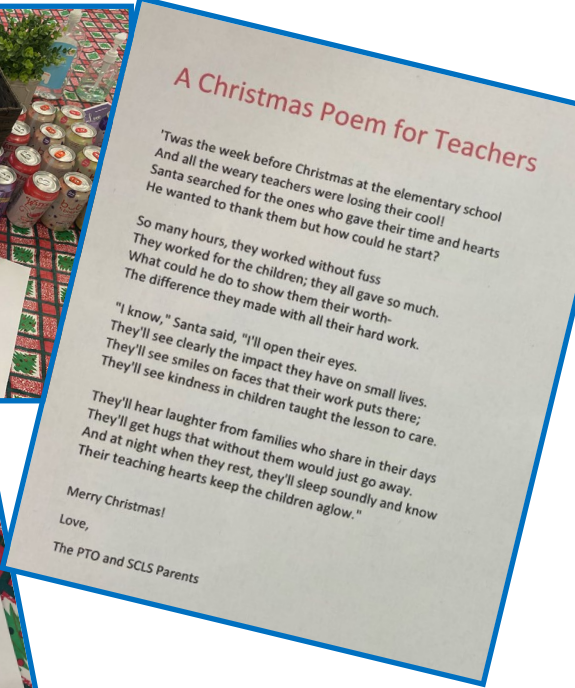 A Christmas Poem for Teachers
'Twas the week before Christmas at the elementary school
And all the weary teachers were losing their cool!
Santa searched for the ones who gave their time and hearts
He wanted to thank them but how could he start?
So many hours, they worked without fuss
They worked for the children; they all gave so much.
What could he do to show them their worth-
The difference they made with all their hard work.
"I know," Santa said, "I'll open their eyes.
They'll see clearly the impact they have on small lives.
They'll see smiles on faces that their work puts there;
They'll see kindness in children taught the lesson to care.
They'll hear laughter from families who share in their days
They'll get hugs that without them would just go away.
And at night when they rest, they'll sleep soundly and know
Their teaching hearts keep the children aglow."
Merry Christmas!
Love,
The PTO and SCLS Parents